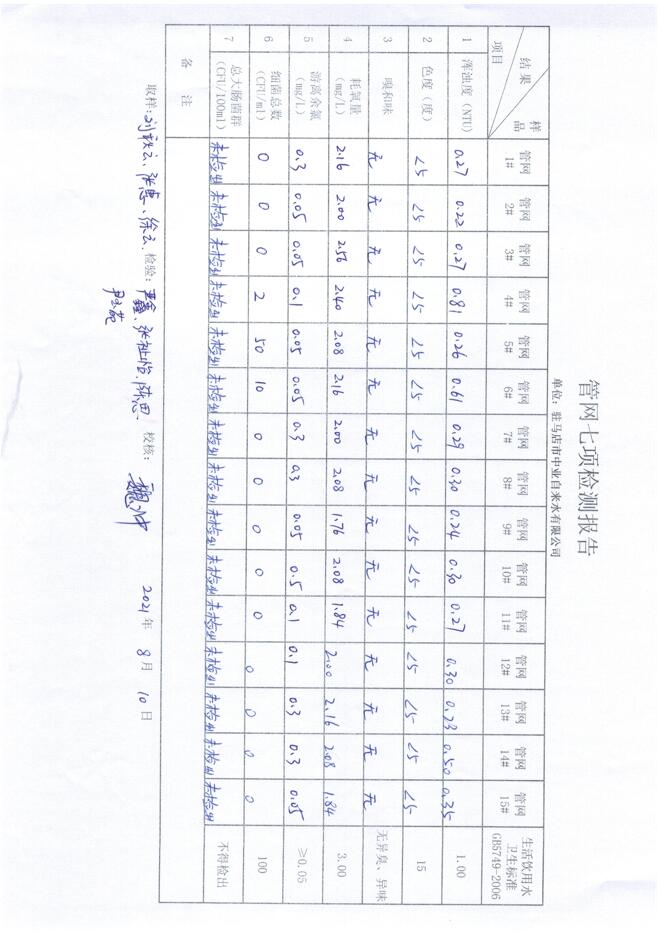 管网七项检测报告
单位：驻马店市中业自来水有限公司
样品 结果 项目 管网1# 管网2# 管网3# 管网4# 管网5# 管网6# 管网7# 管网8# 管网9# 管网10# 管网11# 管网12# 管网13# 管网14# 管网15# 生活饮用水卫生标准GB5749-2006
1 浑浊度（NTU） 0.27 0.22 0.27 0.81 0.26 0.61 0.29 0.30 0.24 0.30 0.27 0.30 0.23 0.50 0.35 1.00
2 色度（度） <5 <5 <5 <5 <5 <5 <5 <5 <5 <5 <5 <5 <5 <5 <5 15
3 嗅和味 无 无 无 无 无 无 无 无 无 无 无 无 无 无 无 无异臭、异味
4 耗氧量（mg/L） 2.16 2.00 2.56 2.40 2.08 2.16 2.00 2.08 1.76 2.08 1.84 2.00 2.16 2.08 1.84 3.00
5 游离余氯（mg/L） 0.3 0.05 0.05 0.1 0.05 0.05 0.3 0.3 0.05 0.5 0.1 0.1 0.3 0.3 0.05 ≥0.05
6 细菌总数（CFU/ml） 0 0 0 2 50 10 0 0 0 0 0 0 0 0 0 100
7 总大肠菌群（CFU/100ml） 未检出 未检出 未检出 未检出 未检出 未检出 未检出 未检出 未检出 未检出 未检出 未检出 未检出 未检出 未检出 不得检出
备 注
取样：刘 云、张惠、徐云 检验： 张 陈思 校核： 2021年 8月 10日
尹